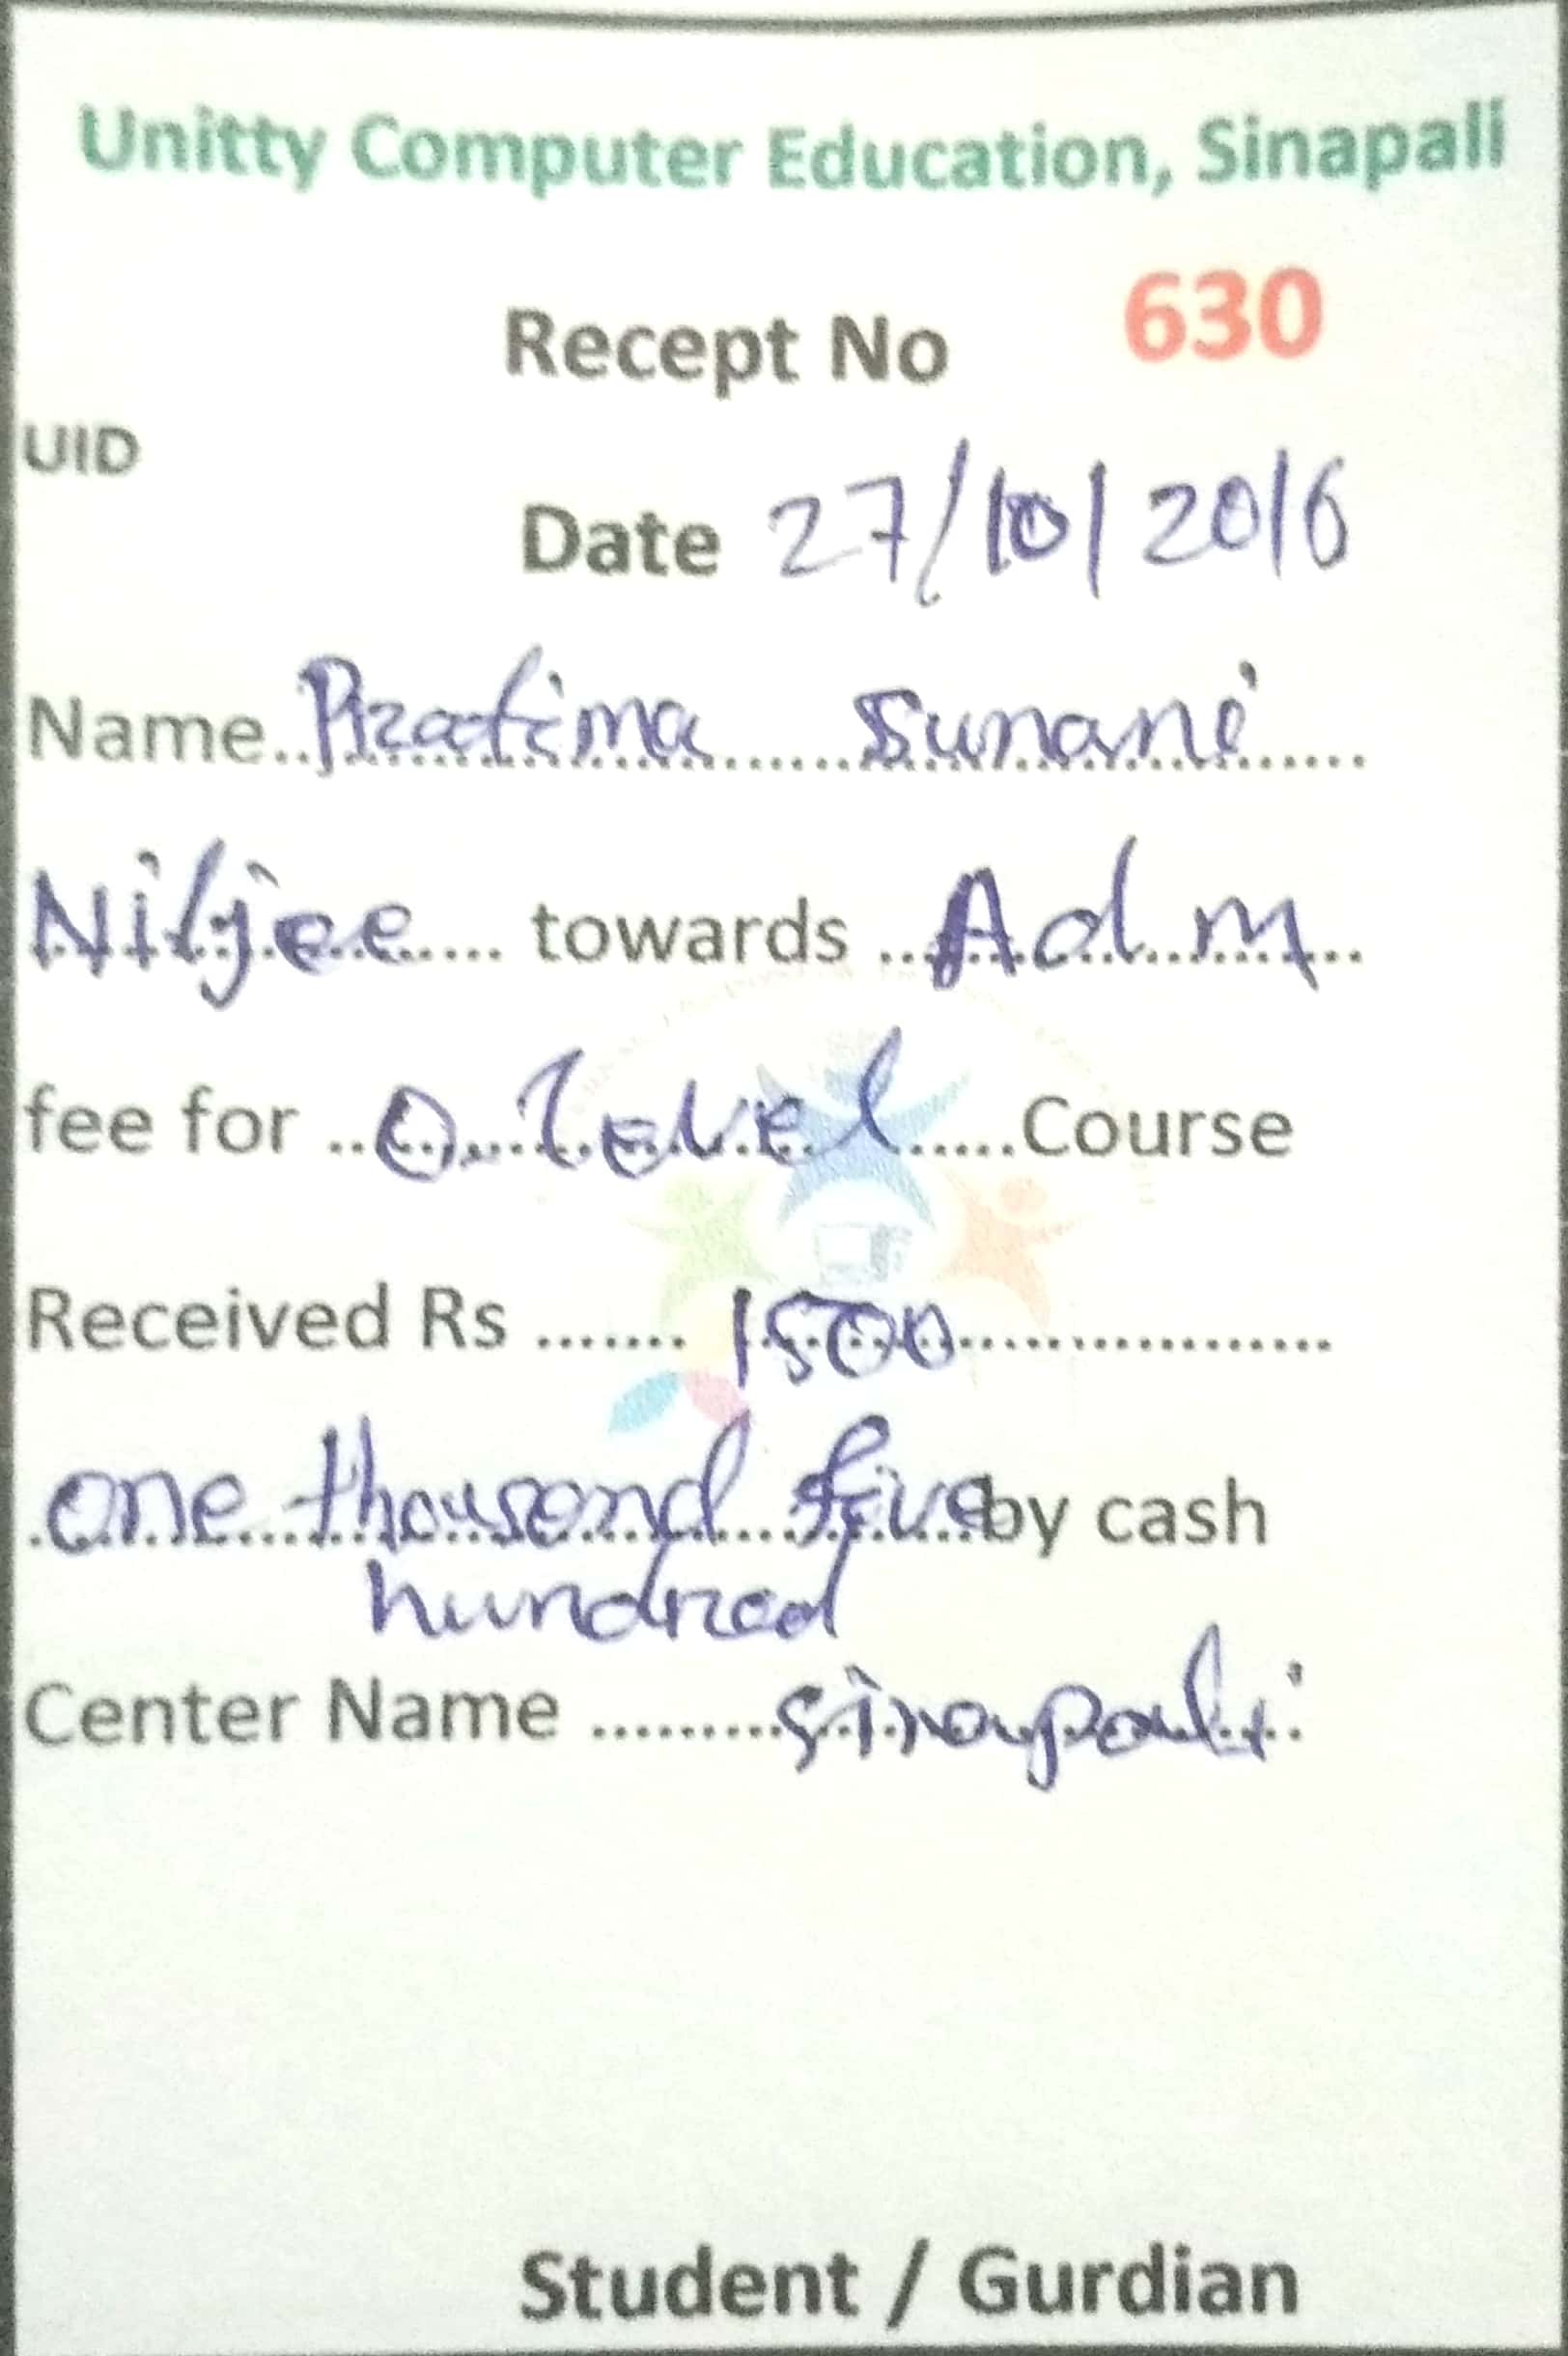 Unitty Computer Education, Sinapali
Recept No 630
UID
Date 27/10/2016
Name..Pratima Sunani
Niljee.... towards ...Adm
fee for ..O.Level......Course
Received Rs .......1500
one thousand five by cash
hundred
Center Name .........Sinapali
Student / Gurdian